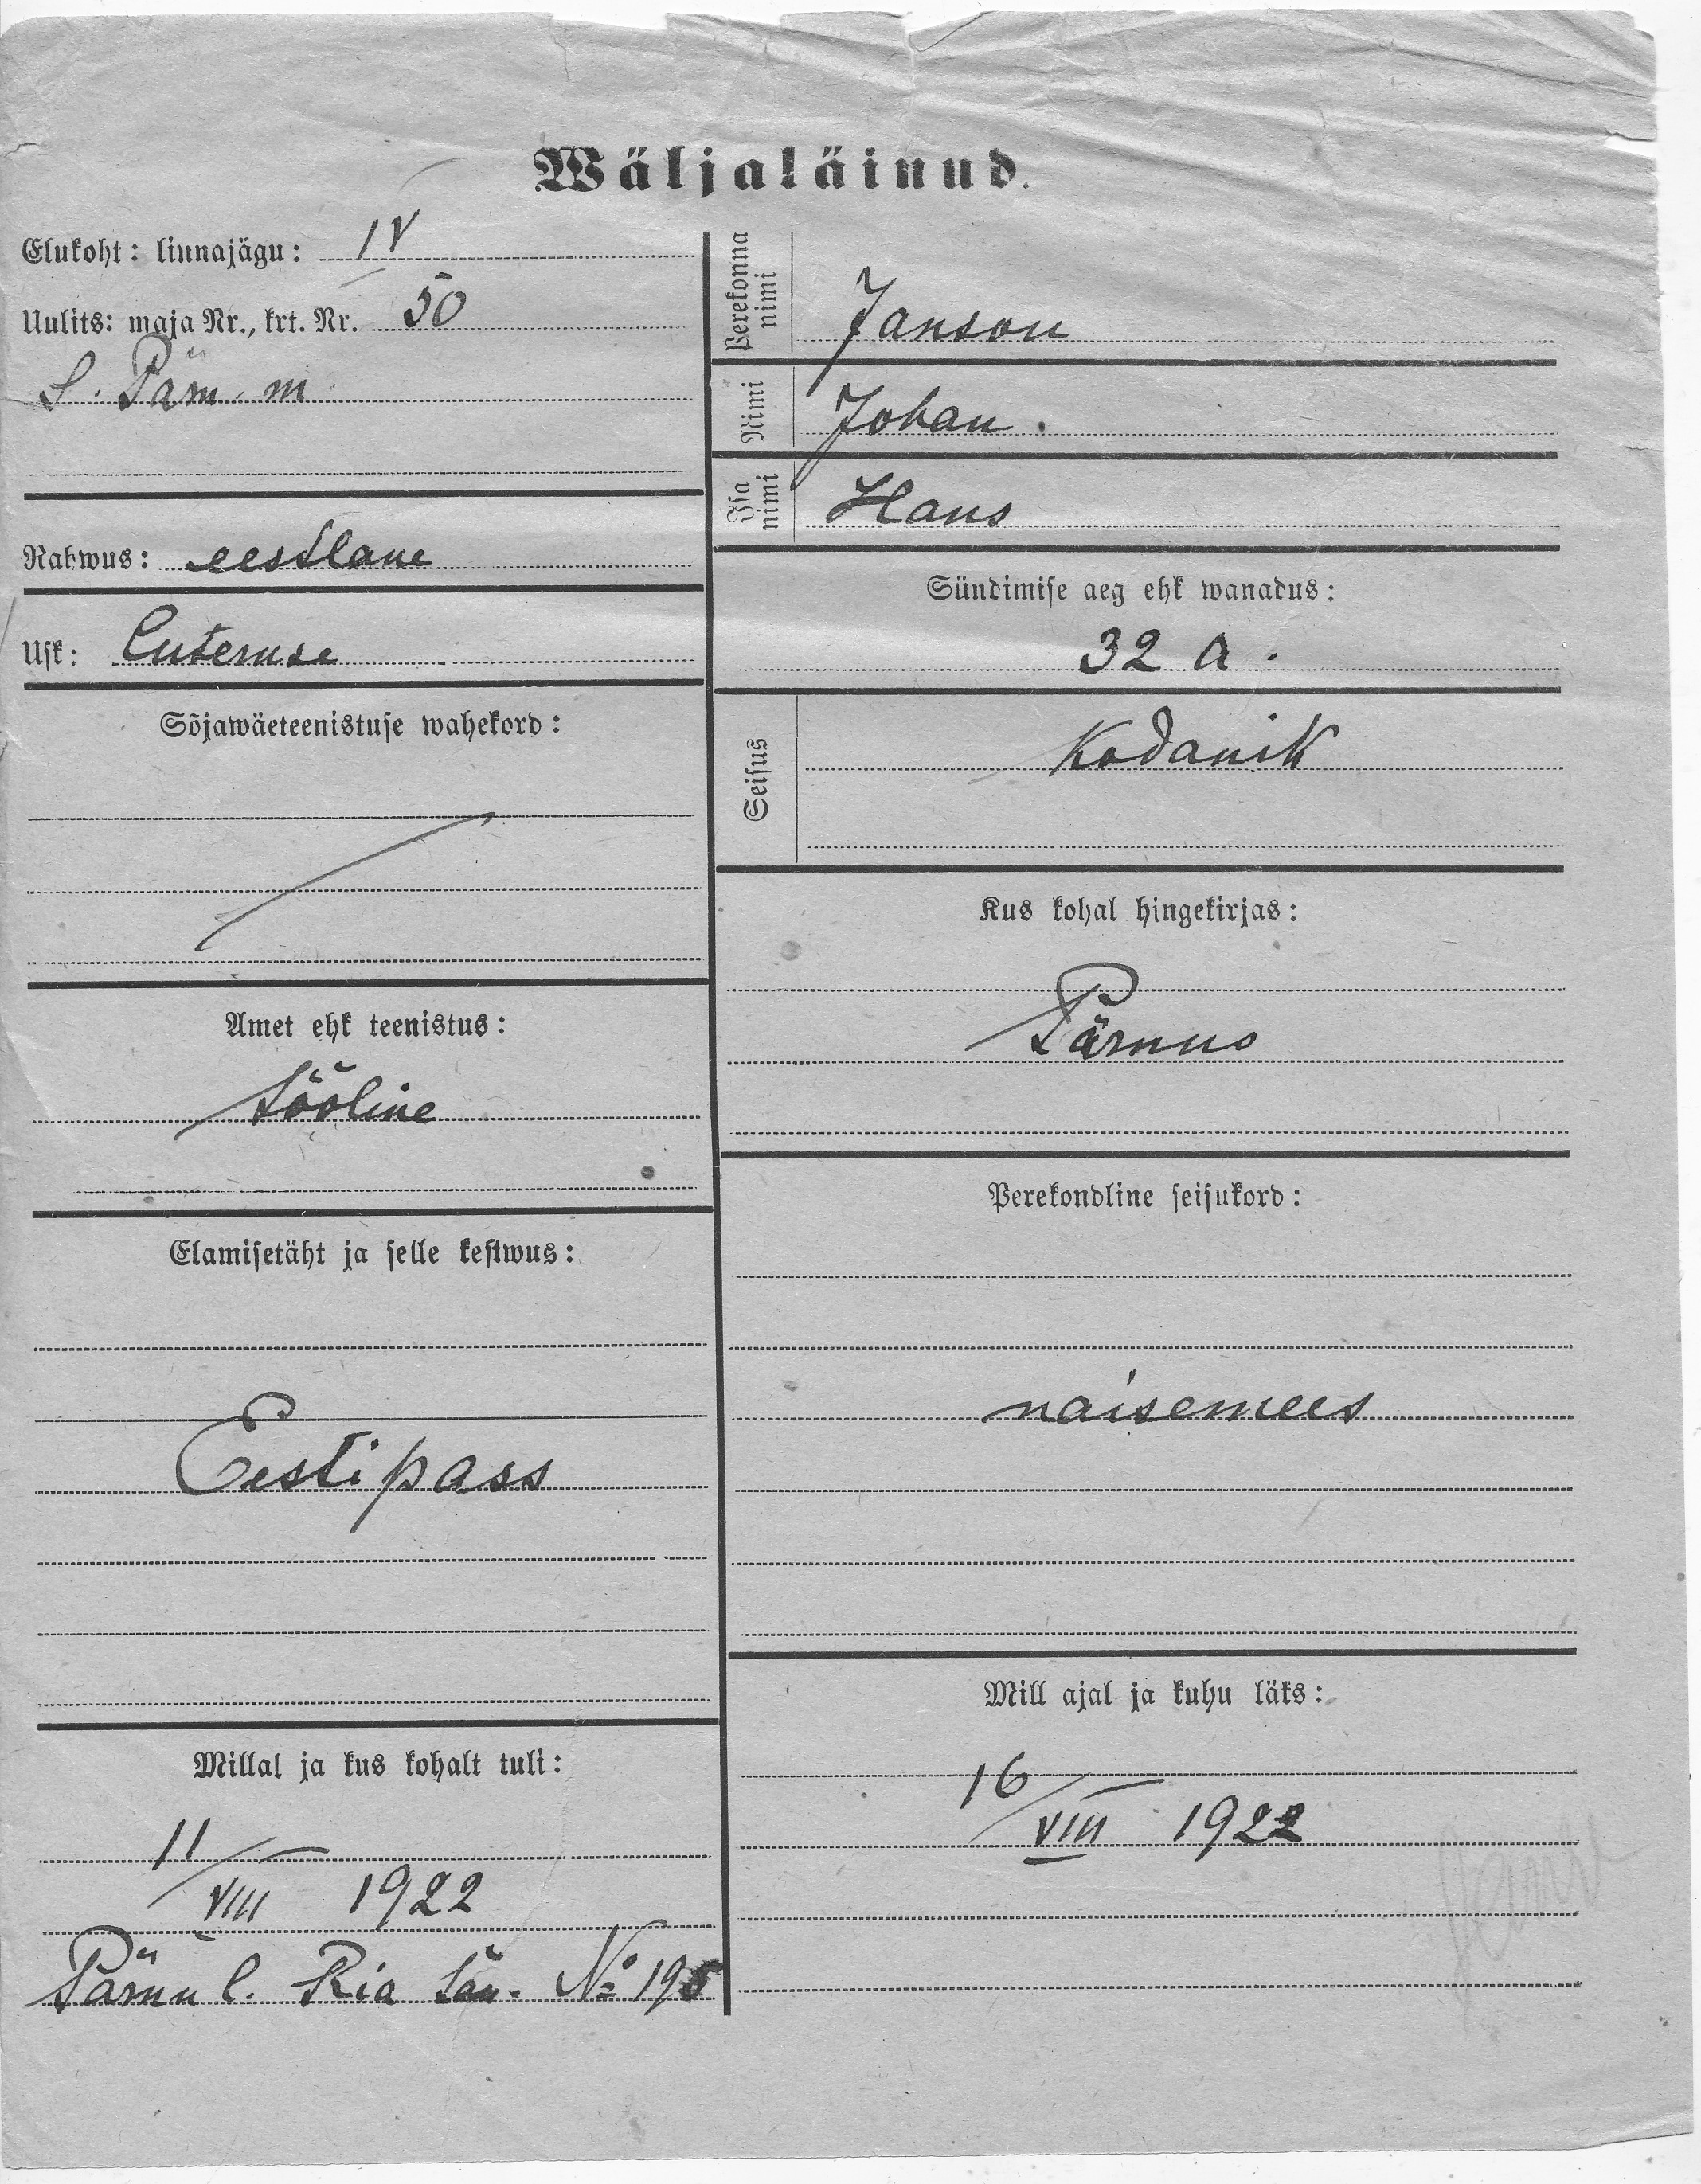 Wäljaläinud.
Elukoht: linnajägu: IV
Uulits: maja Nr., krt. Nr. 50
S. Pärn. m.
Rahwus: eestlane
Usk: Luteruse
Sõjawäeteenistuse wahekord:
Amet ehk teenistus:
tööline
Elamisetäht ja selle kestwus:
Eesti pass
Millal ja kus kohalt tuli:
11/VIII 1922
Pärnu l. Ria tän. № 195
Perekonna nimi Janson
Nimi Johan.
Isa nimi Hans
Sündimise aeg ehk wanadus:
32 a.
Seisus kodanik
Kus kohal hingekirjas:
Pärnus
Perekondline seisukord:
naisemees
Mill ajal ja kuhu läks:
16/VIII 1922